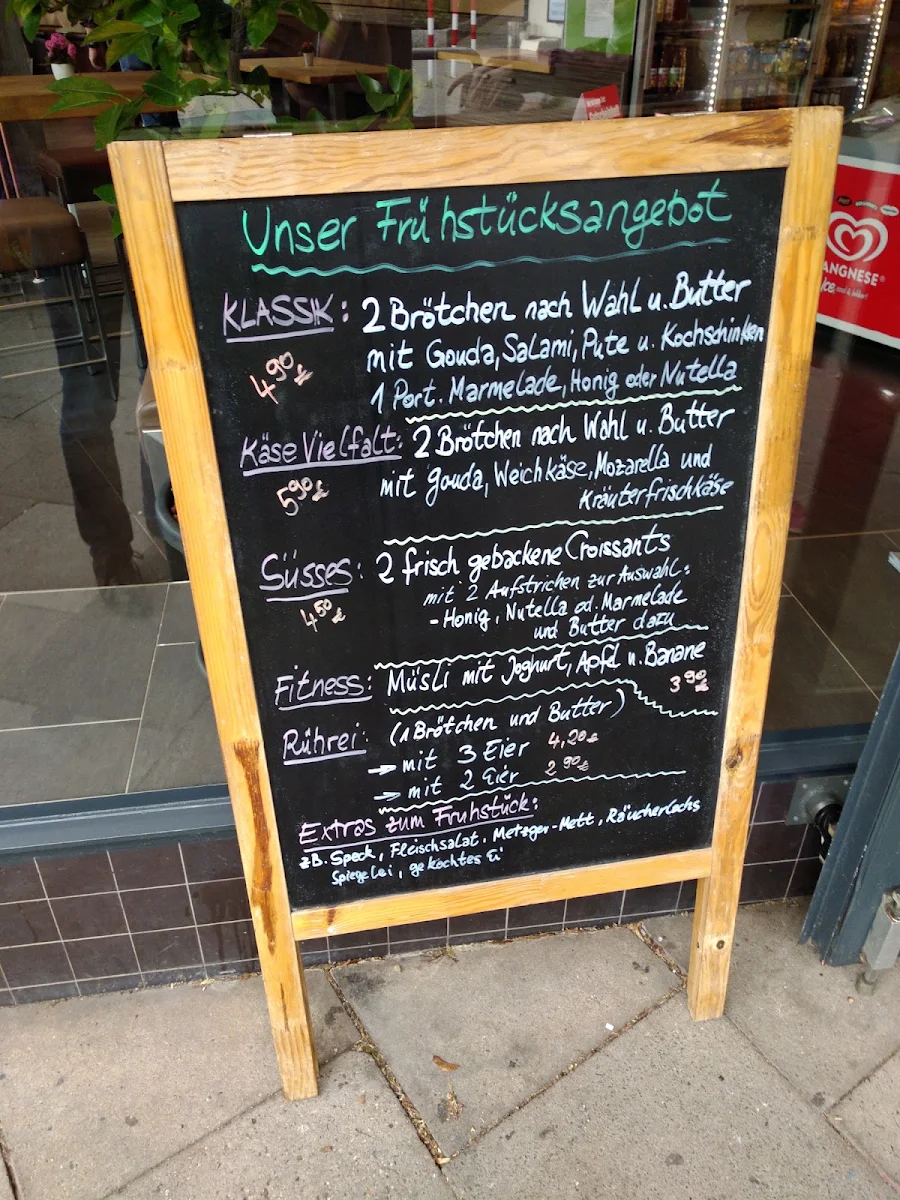 Unser Frühstücksangebot
KLASSIK: 2 Brötchen nach Wahl u. Butter
mit Gouda, Salami, Pute u. Kochschinken
4,90€
1 Port. Marmelade, Honig oder Nutella
Käse Vielfalt: 2 Brötchen nach Wahl u. Butter
mit Gouda, Weichkäse, Mozarella und
5,90€
Kräuterfrischkäse
Süsses: 2 frisch gebackene Croissants
mit 2 Aufstrichen zur Auswahl:
4,50€
- Honig, Nutella od. Marmelade
und Butter dazu
Fitness: Müsli mit Joghurt, Apfel u. Banane
3,90€
Rührei: (1 Brötchen und Butter)
→ mit 3 Eier
→ mit 2 Eier 2,90€
Extras zum Frühstück:
zB. Speck, Fleischsalat, Metzger-Mett, Räucherlachs
Spiegelei, gekochtes Ei
ANGNESE